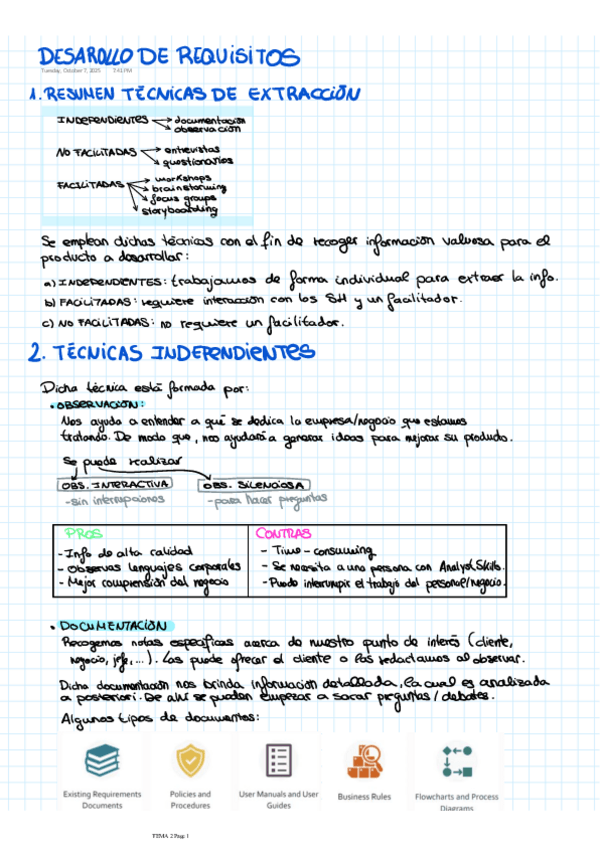 DESAROLLO DE REQUISITOS
Tuesday, October 7, 2025 7:43 PM
1. RESUMEN TÉCNICAS DE EXTRACCIÓN
INDEPENDIENTES → documentación
→ observación
NO FACILITADAS → entrevistas
→ questionarios
FACILITADAS → workshops
→ brainstorming
→ focus groups
→ storyboarding
Se emplean dichas técnicas con el fin de recoger información valuosa para el
producto a desarrollar:
a) INDEPENDIENTES: trabajamos de forma individual para extraer la info.
b) FACILITADAS: requiere interacción con los SH y un facilitador.
c) NO FACILITADAS: no requiere un facilitador.
2. TÉCNICAS INDEPENDIENTES
Dicha técnica está formada por:
• OBSERVACIÓN:
Nos ayuda a entender a qué se dedica la empresa/negocio que estamos
tratando. De modo que, nos ayudará a generar ideas para mejorar su producto.
Se puede realizar
OBS. INTERACTIVA OBS. SILENCIOSA
-sin interrupciones -para hacer preguntas
PROS CONTRAS
- Info de alta calidad - Time-consuming
- Observas lenguajes corporales - Se necesita a una persona con Analyst Skills.
- Mejor comprensión del negocio - Puede interrumpir el trabajo del personal/negocio.
• DOCUMENTACIÓN
Recogemos notas específicas acerca de nuestro punto de interés (cliente,
negocio, jefe,...). Las puede ofrecer el cliente o las redactamos al observar.
Dicha documentación nos brinda información detallada, la cual es analizada
a posteriori. De ahí se pueden empezar a sacar preguntas/debates.
Algunos tipos de documentos:
Existing Requirements Documents
Policies and Procedures
User Manuals and User Guides
Business Rules
Flowcharts and Process Diagrams
TEMA 2 Page 1